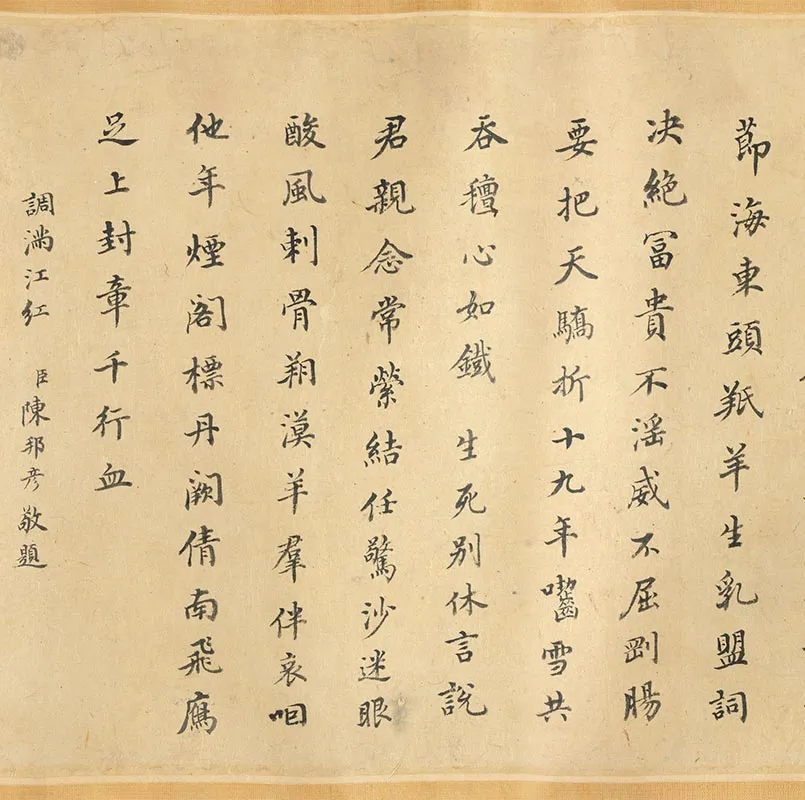 莭海東頭羝羊生乳盟詞
决絶冨貴不滛威不屈剛腸
要把天驕折十九年囓雪共
吞氊心如鐵 生死别休言說
君親念常縈結任驚沙迷眼
酸風刺骨朔漠羊羣伴哀咽
他年煙閣標丹闕倩南飛鴈
足上封章千行血
調滿江紅 臣陳邦彦敬題